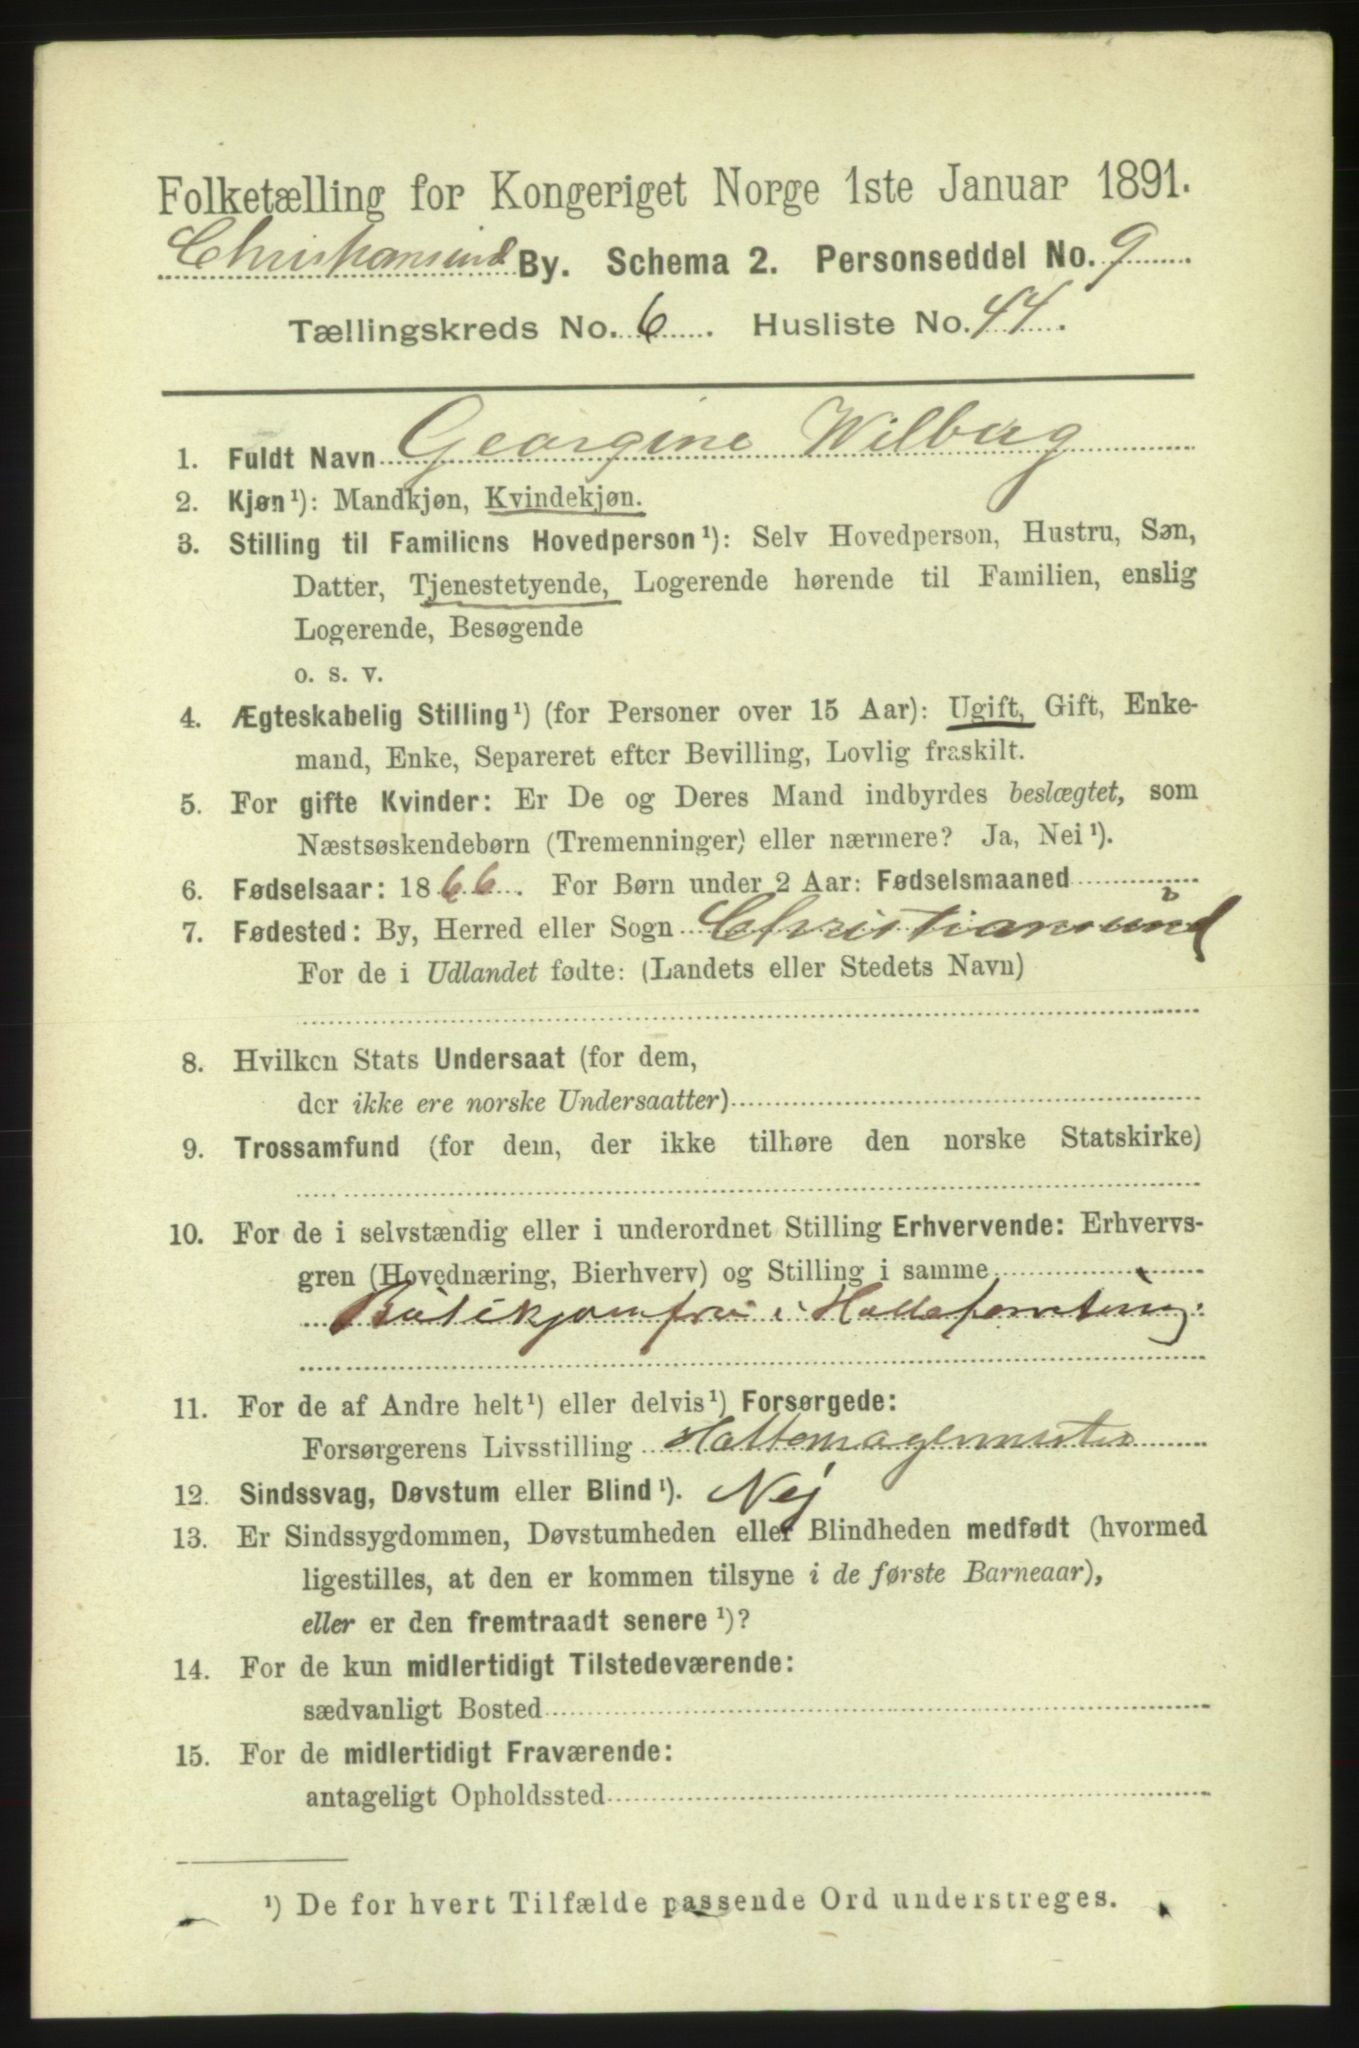 Folketælling for Kongeriget Norge 1ste Januar 1891.
Christiansund By. Schema 2. Personseddel No. 9
Tællingskreds No. 6. Husliste No. 44.
1. Fuldt Navn Georgine Wilberg
2. Kjøn¹): Mandkjøn, Kvindekjøn.
3. Stilling til Familiens Hovedperson¹): Selv Hovedperson, Hustru, Søn,
Datter, Tjenestetyende, Logerende hørende til Familien, enslig
Logerende, Besøgende
o. s. v.
4. Ægteskabelig Stilling¹) (for Personer over 15 Aar): Ugift, Gift, Enke-
mand, Enke, Separeret efter Bevilling, Lovlig fraskilt.
5. For gifte Kvinder: Er De og Deres Mand indbyrdes beslægtet, som
Næstsøskendebørn (Tremenninger) eller nærmere? Ja, Nei¹).
6. Fødselsaar: 1866. For Børn under 2 Aar: Fødselsmaaned
7. Fødested: By, Herred eller Sogn Christiansund
For de i Udlandet fødte: (Landets eller Stedets Navn)
8. Hvilken Stats Undersaat (for dem,
der ikke ere norske Undersaatter)
9. Trossamfund (for dem, der ikke tilhøre den norske Statskirke)
10. For de i selvstændig eller i underordnet Stilling Erhvervende: Erhvervs-
gren (Hovednæring, Bierhverv) og Stilling i samme
Butikjomfru i
11. For de af Andre helt¹) eller delvis¹) Forsørgede:
Forsørgerens Livsstilling Hattemagermester
12. Sindssvag, Døvstum eller Blind¹). Nej
13. Er Sindssygdommen, Døvstumheden eller Blindheden medfødt (hvormed
ligestilles, at den er kommen tilsyne i de første Barneaar),
eller er den fremtraadt senere¹)?
14. For de kun midlertidigt Tilstedeværende:
sædvanligt Bosted
15. For de midlertidigt Fraværende:
antageligt Opholdssted
¹) De for hvert Tilfælde passende Ord understreges.